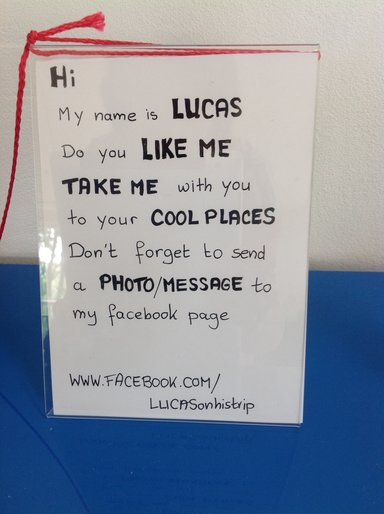 Hi
My name is LUCAS
Do you LIKE ME
TAKE ME with you
to your COOL PLACES
Don't forget to send
a PHOTO/MESSAGE to
my facebook page
WWW.FACEBOOK.COM/
LUCASonhistrip